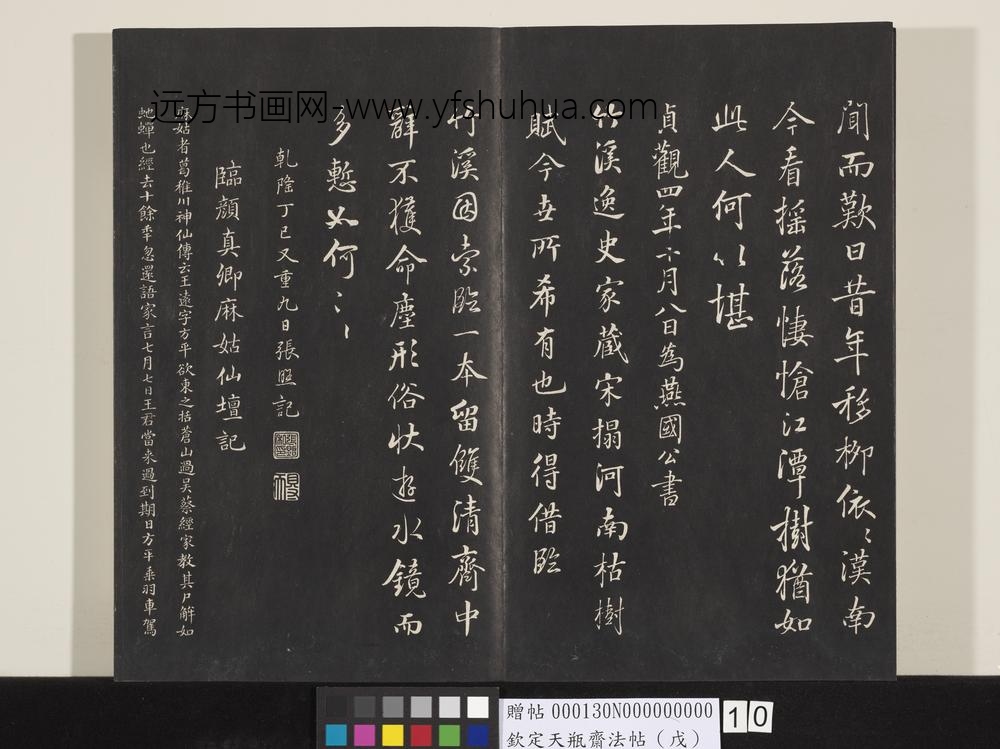 聞而歎曰昔年移柳依〻漢南
今看揺落悽愴江潭樹猶如
此人何以堪
貞觀四年十月八日為燕國公書
竹溪逸史家藏宋搨河南枯樹
賦今世所希有也時得借臨
竹溪因索臨一本留雙清齋中
辭不獲命塵形俗狀遊水鏡而
多慙如何〻〻
乾隆丁巳又重九日張照記
臨顏真卿麻姑仙壇記
麻姑者葛稚川神仙傳云王遠字方平欲東之括蒼山過吳蔡經家教其尸解如
虵蟬也經去十餘年忽還語家言七月七日王君當来過到期日方平乗羽車駕
远方书画网-www.yfshuhua.com
贈帖 000130N000000000
欽定天瓶齋法帖（戊）
10